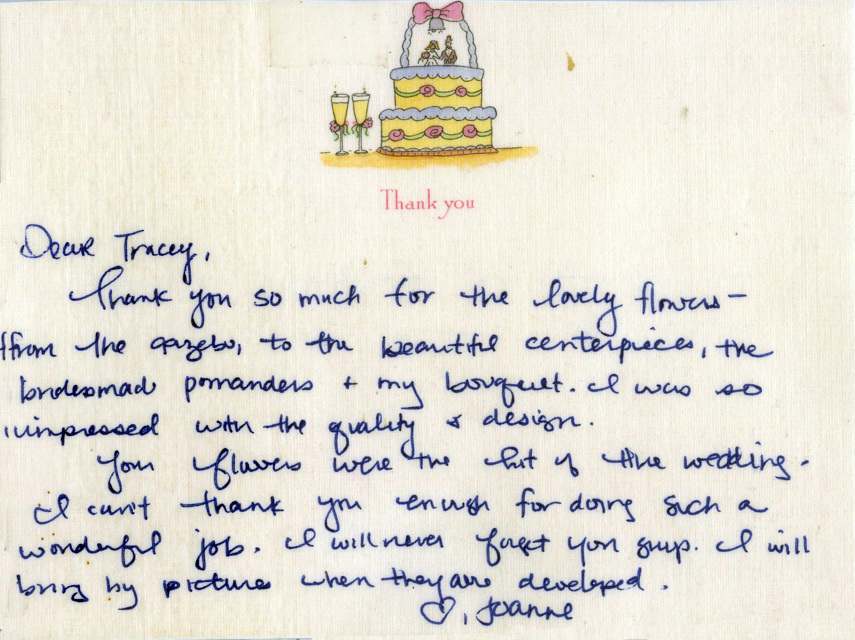 Thank you
Dear Tracey,
Thank you so much for the lovely flowers –
from the gazebo, to the beautiful centerpieces, the
bridesmaid pomanders + my bouquet. I was so
impressed with the quality & design.
Your flowers were the hit of the wedding.
I can't thank you enough for doing such a
wonderful job. I will never forget you guys. I will
bring by pictures when they are developed.
♡, Joanne